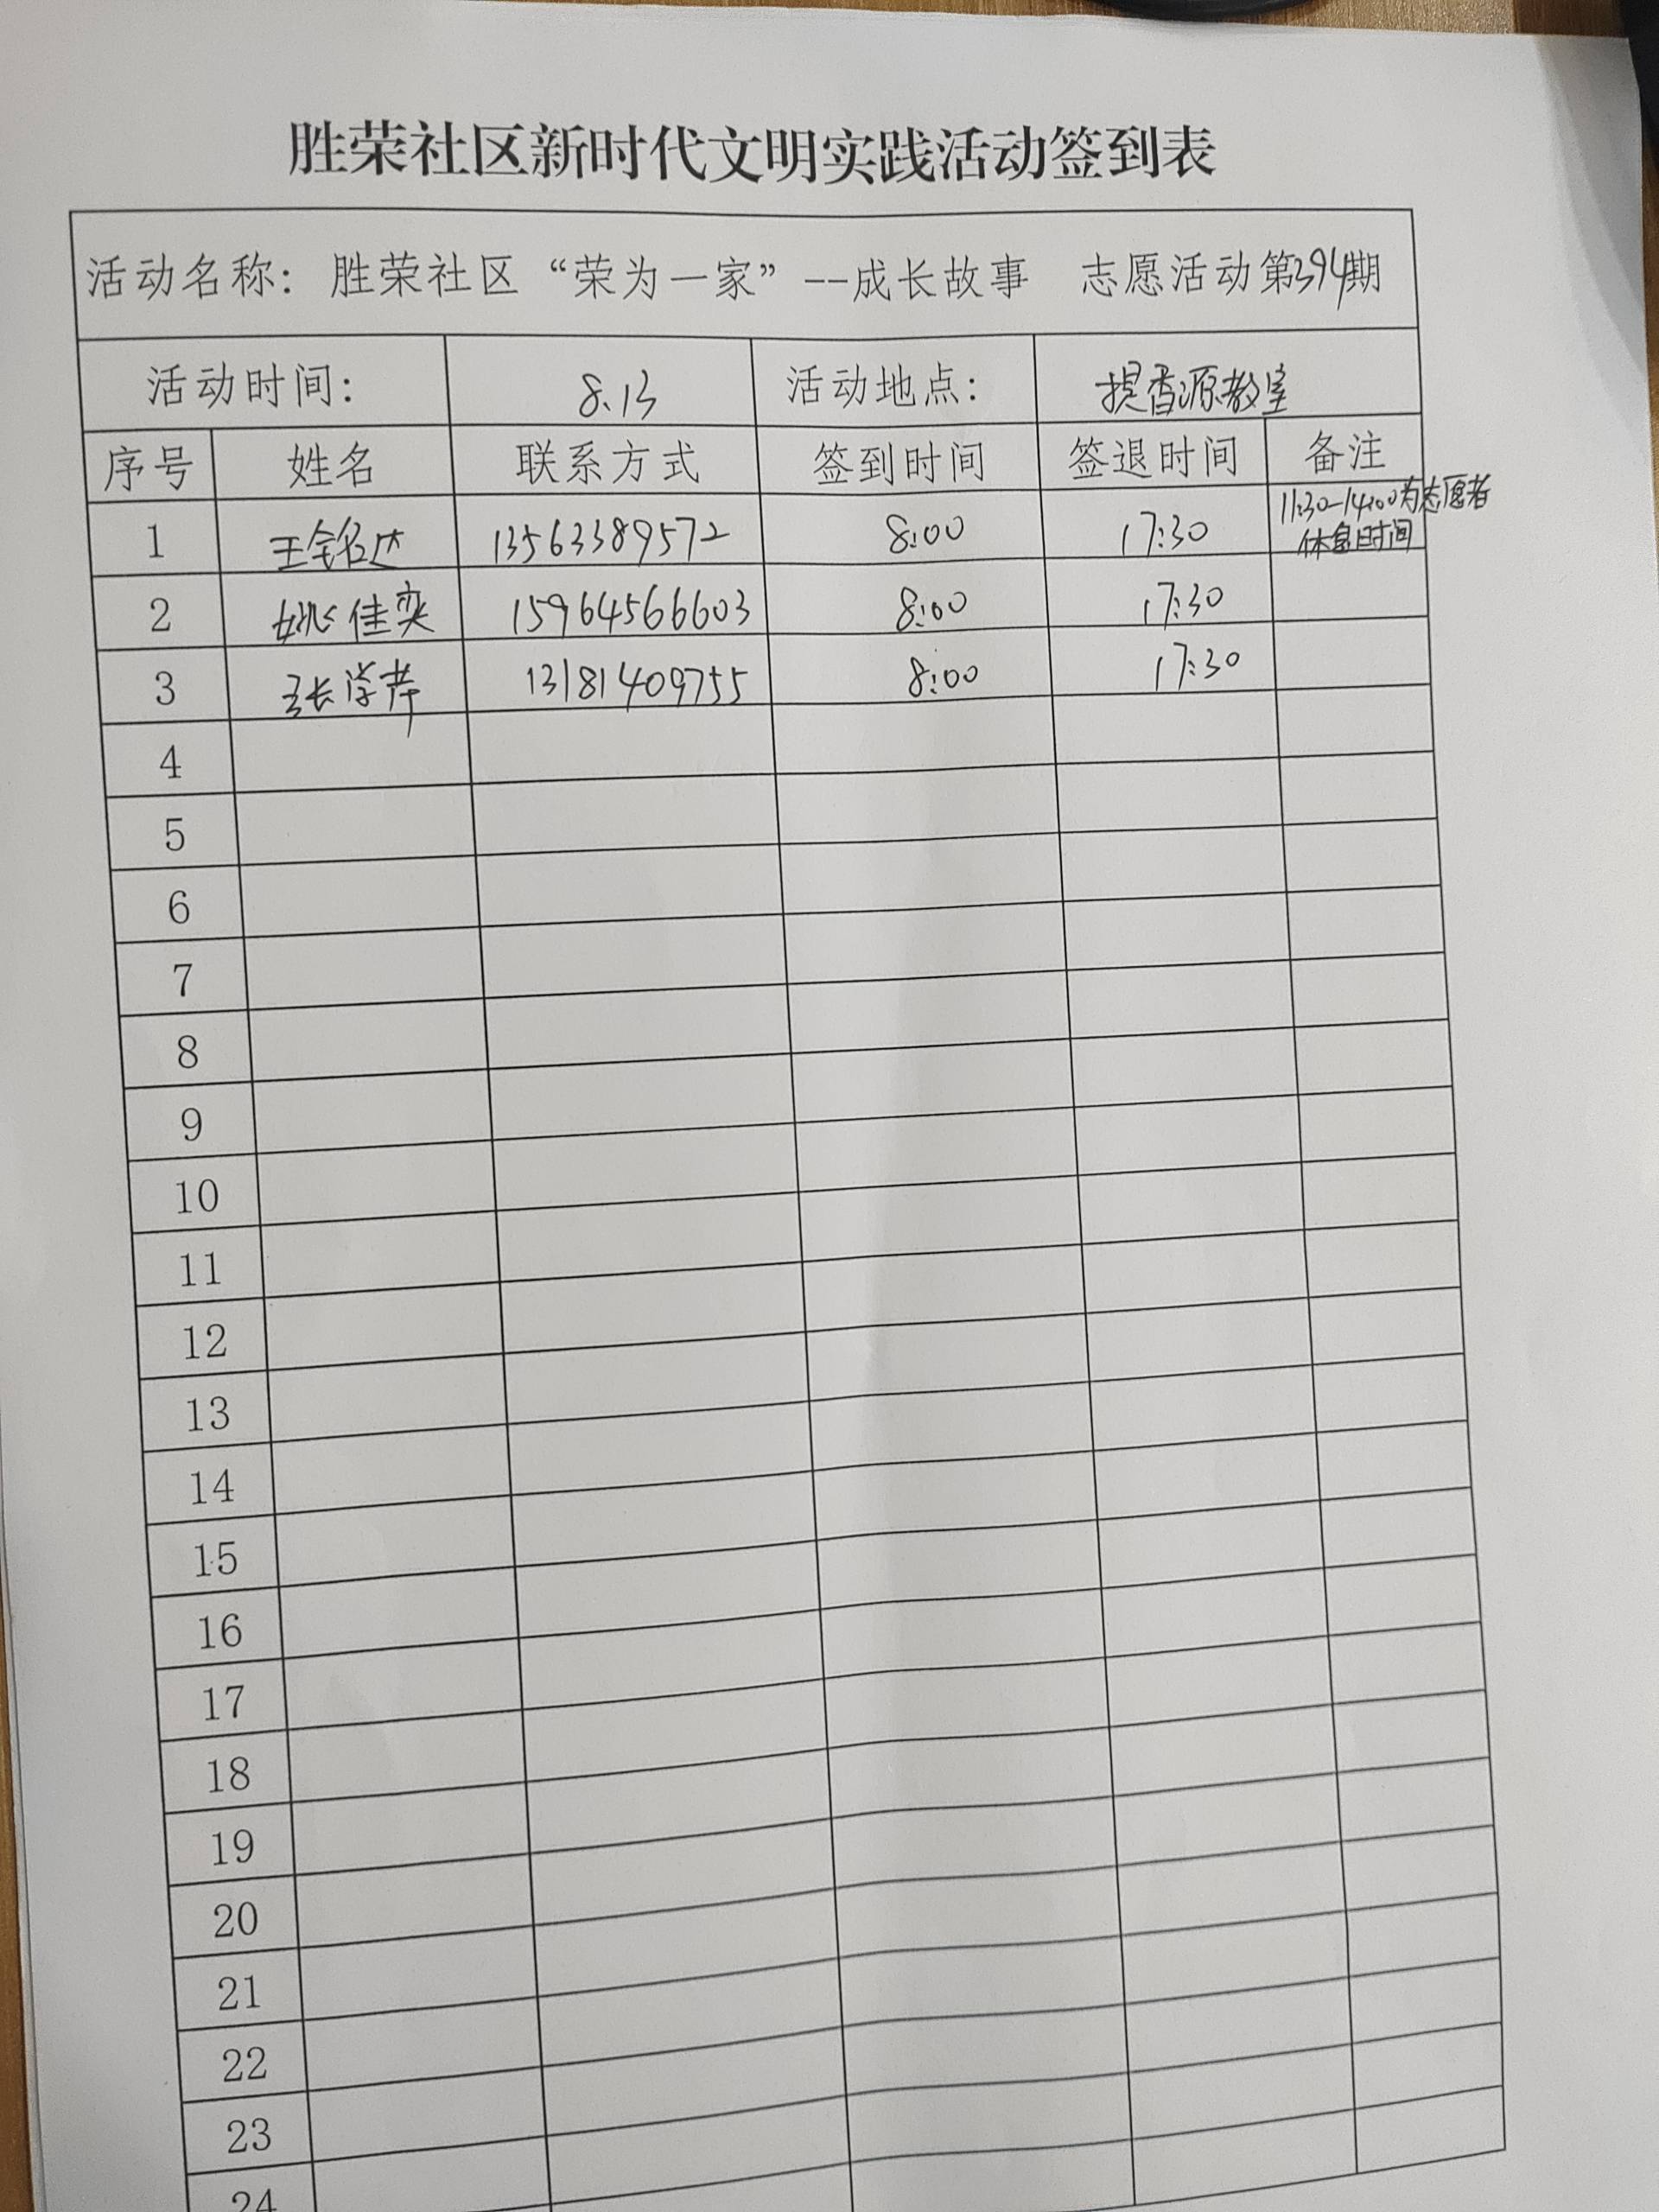 胜荣社区新时代文明实践活动签到表
活动名称：胜荣社区“荣为一家”--成长故事 志愿活动第394期
活动时间： 8.13 活动地点： 提香源教室
序号 姓名 联系方式 签到时间 签退时间 备注
1 王铭达 13563389572 8:00 17:30 11:30-14:00为志愿者
休息时间
2 姚佳奕 15964566603 8:00 17:30
3 张学苹 13181409755 8:00 17:30
4
5
6
7
8
9
10
11
12
13
14
15
16
17
18
19
20
21
22
23
24